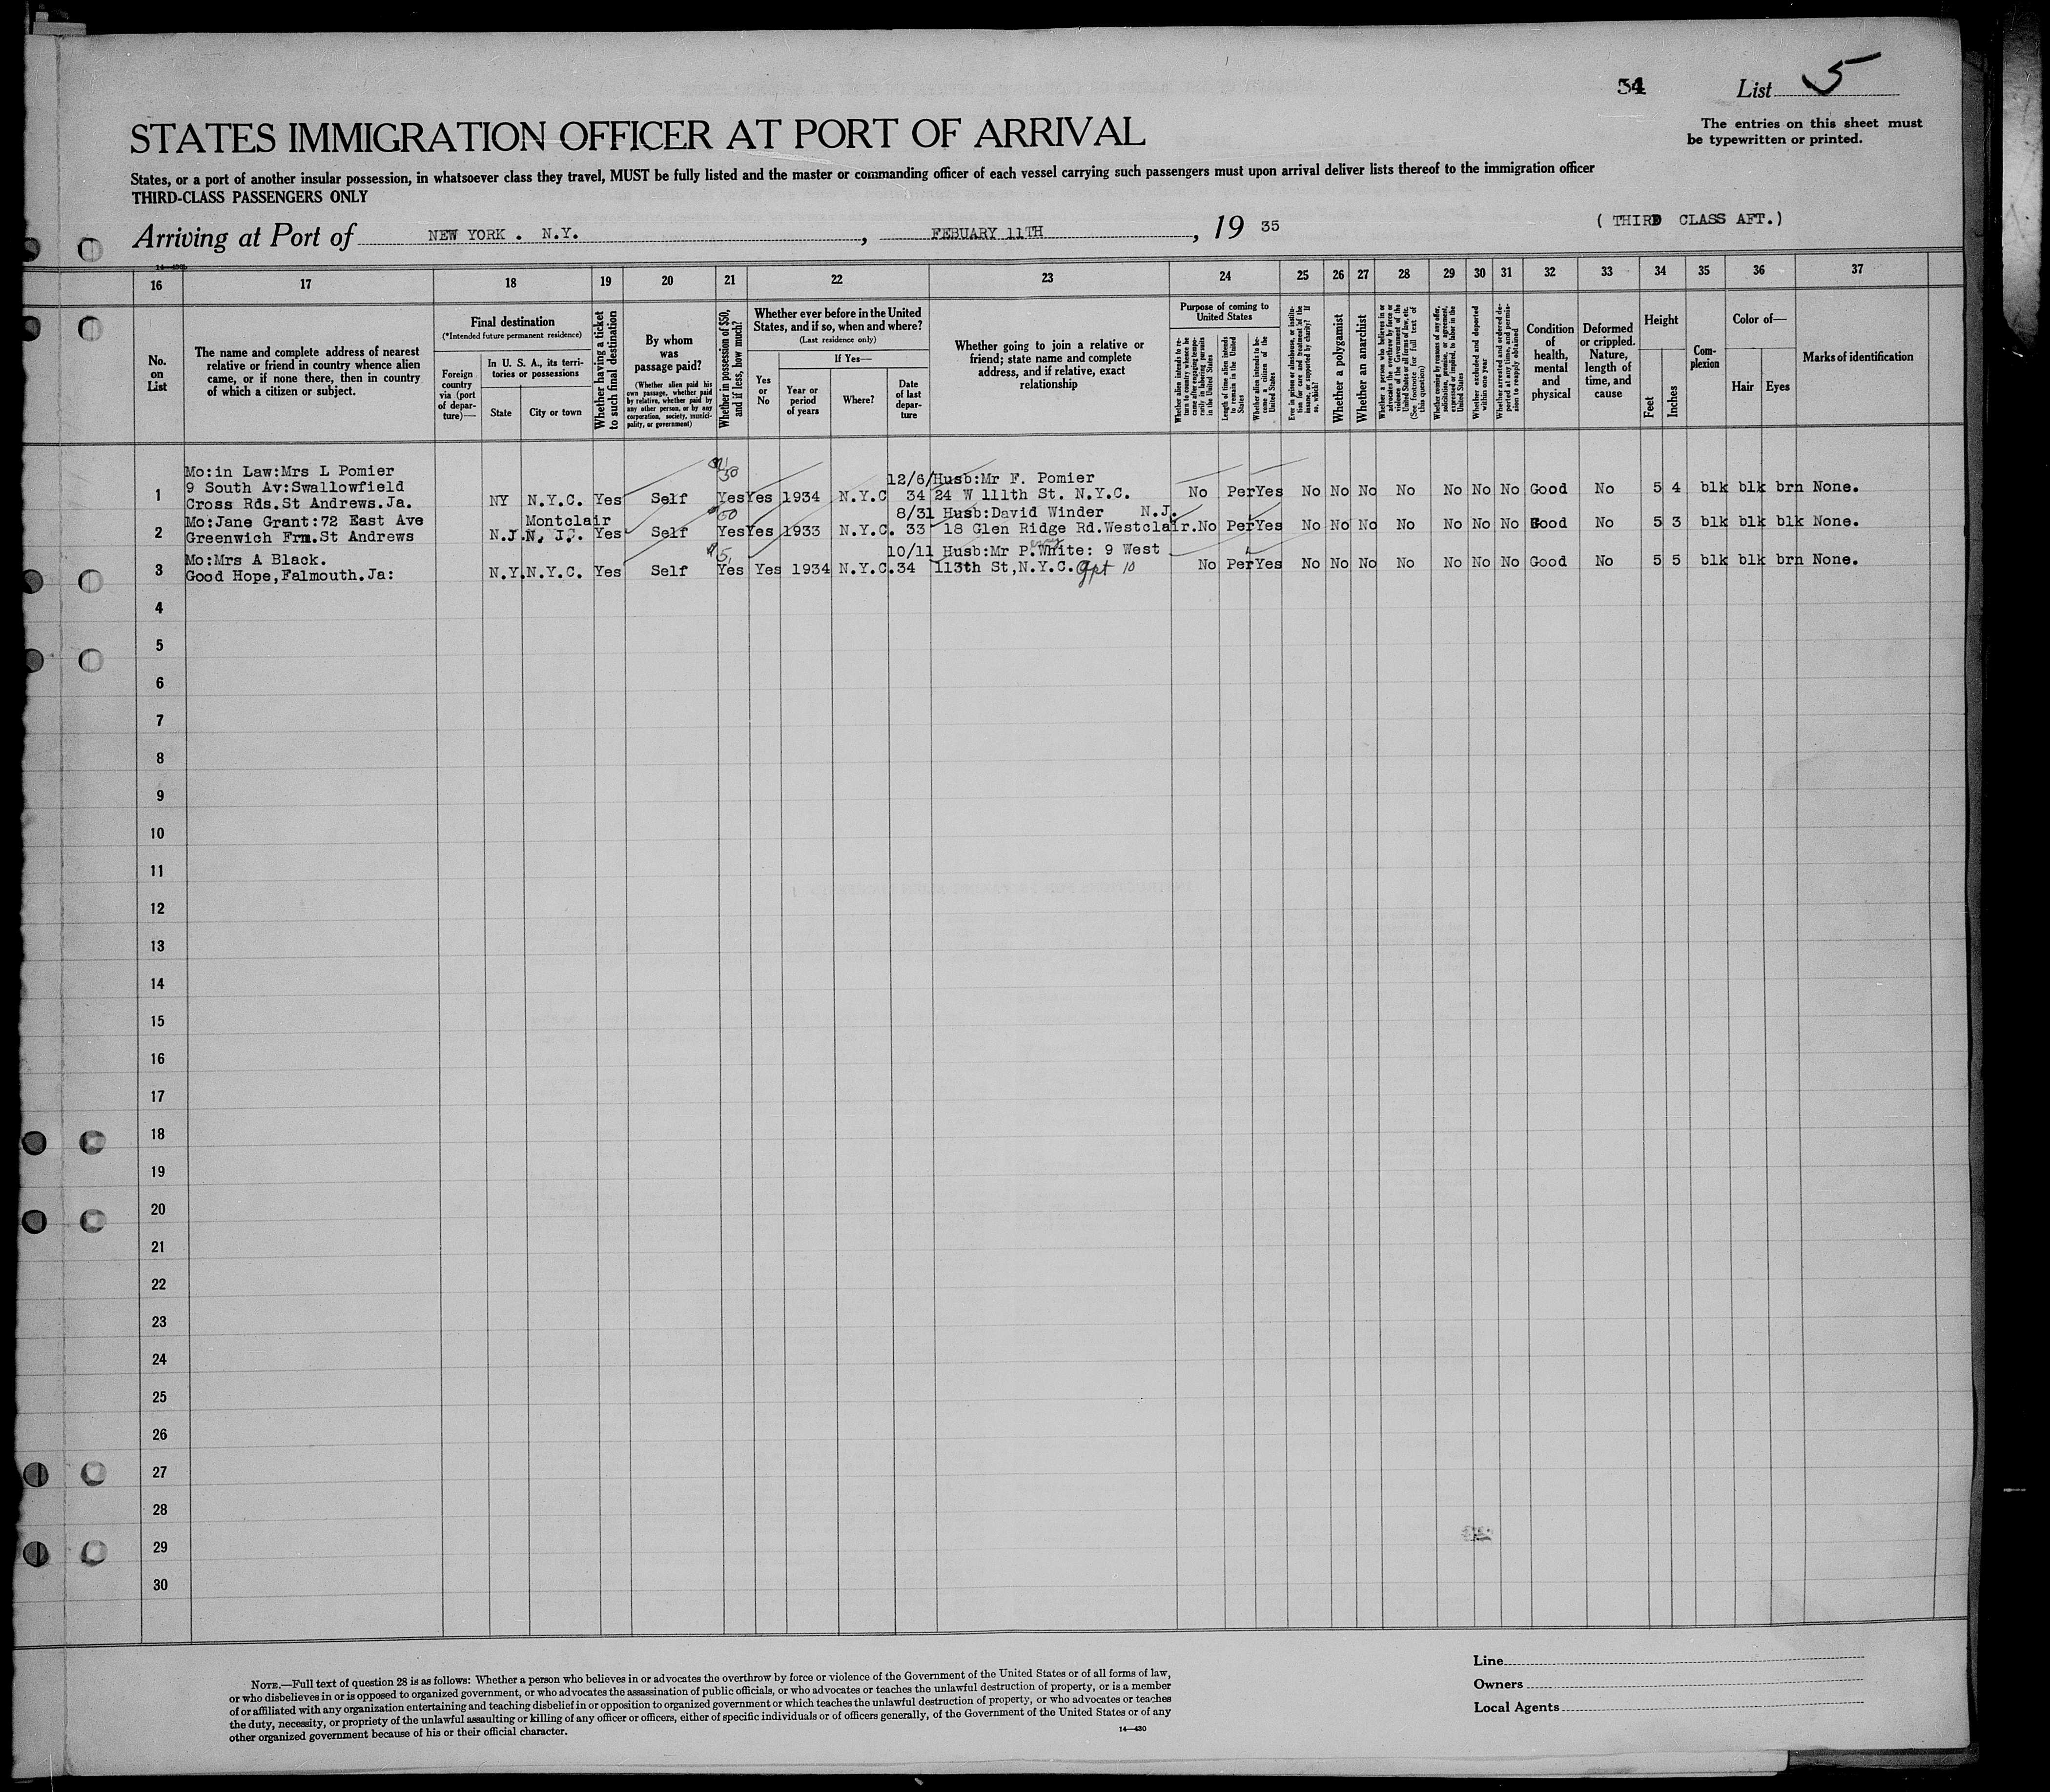 54
List 5
The entries on this sheet must
be typewritten or printed.
STATES IMMIGRATION OFFICER AT PORT OF ARRIVAL
States, or a port of another insular possession, in whatsoever class they travel, MUST be fully listed and the master or commanding officer of each vessel carrying such passengers must upon arrival deliver lists thereof to the immigration officer
THIRD-CLASS PASSENGERS ONLY
( THIRD CLASS AFT.)
Arriving at Port of NEW YORK . N.Y. , FEBUARY 11TH , 19 35
16 17 18 19 20 21 22 23 24 25 26 27 28 29 30 31 32 33 34 35 36 37
No.
on
List
The name and complete address of nearest
relative or friend in country whence alien
came, or if none there, then in country
of which a citizen or subject.
Final destination
(*Intended future permanent residence)
Foreign
country
via (port
of depar-
ture)—
In U. S. A., its terri-
tories or possessions
State
City or town
Whether having a ticket
to such final destination
By whom
was
passage paid?
(Whether alien paid his
own passage, whether paid
by relative, whether paid by
any other person, or by any
corporation, society, munici-
pality, or government)
Whether in possession of $50,
and if less, how much?
Whether ever before in the United
States, and if so, when and where?
(Last residence only)
Yes
or
No
If Yes—
Year or
period
of years
Where?
Date
of last
depar-
ture
Whether going to join a relative or
friend; state name and complete
address, and if relative, exact
relationship
Purpose of coming to
United States
Whether alien intends to re-
turn to country whence he
came after engaging tempo-
rarily in laboring pursuits
in the United States
Length of time alien intends
to remain in the United
States
Whether alien intends to be-
come a citizen of the
United States
Ever in prison or almshouse, or institu-
tion for care and treatment of the
insane, or supported by charity? If
so, which?
Whether a polygamist
Whether an anarchist
Whether a person who believes in or
advocates the overthrow by force or
violence of the Government of the
United States or all forms of law, etc.
(See footnote for full text of
this question)
Whether coming by reasons of any offer,
solicitation, promise, or agreement,
expressed or implied, to labor in the
United States
Whether excluded and deported
within one year
Whether arrested and ordered de-
ported at any time, and permis-
sion to reapply obtained
Condition
of
health,
mental
and
physical
Deformed
or crippled.
Nature,
length of
time, and
cause
Height
Feet
Inches
Com-
plexion
Color of—
Hair
Eyes
Marks of identification
Mo:in Law:Mrs L Pomier 50 12/6/ Husb:Mr F. Pomier
9 South Av:Swallowfield
1 Cross Rds.St Andrews.Ja. NY N.Y.C. Yes Self Yes Yes 1934 N.Y.C 34 24 W 111th St. N.Y.C. No Per Yes No No No No No No No Good No 5 4 blk blk brn None.
Mo:Jane Grant:72 East Ave Montclair 50 8/31 Husb:David Winder N.J.
2 Greenwich Frm.St Andrews N.J. N. J. Yes Self Yes Yes 1933 N.Y.C. 33 18 Glen Ridge Rd.Westclair. No Per Yes No No No No No No No Good No 5 3 blk blk blk None.
Mo:Mrs A Black. 5 10/11 Husb:Mr P.White: 9 West
3 Good Hope,Falmouth.Ja: N.Y. N.Y.C. Yes Self Yes Yes 1934 N.Y.C. 34 113th St,N.Y.C. Apt 10 No Per Yes No No No No No No No Good No 5 5 blk blk brn None.
4
5
6
7
8
9
10
11
12
13
14
15
16
17
18
19
20
21
22
23
24
25
26
27
28
29
30
NOTE.—Full text of question 28 is as follows: Whether a person who believes in or advocates the overthrow by force or violence of the Government of the United States or of all forms of law,
or who disbelieves in or is opposed to organized government, or who advocates the assassination of public officials, or who advocates or teaches the unlawful destruction of property, or is a member
of or affiliated with any organization entertaining and teaching disbelief in or opposition to organized government or which teaches the unlawful destruction of property, or who advocates or teaches
the duty, necessity, or propriety of the unlawful assaulting or killing of any officer or officers, either of specific individuals or of officers generally, of the Government of the United States or of any
other organized government because of his or their official character.
14—430
Line
Owners
Local Agents